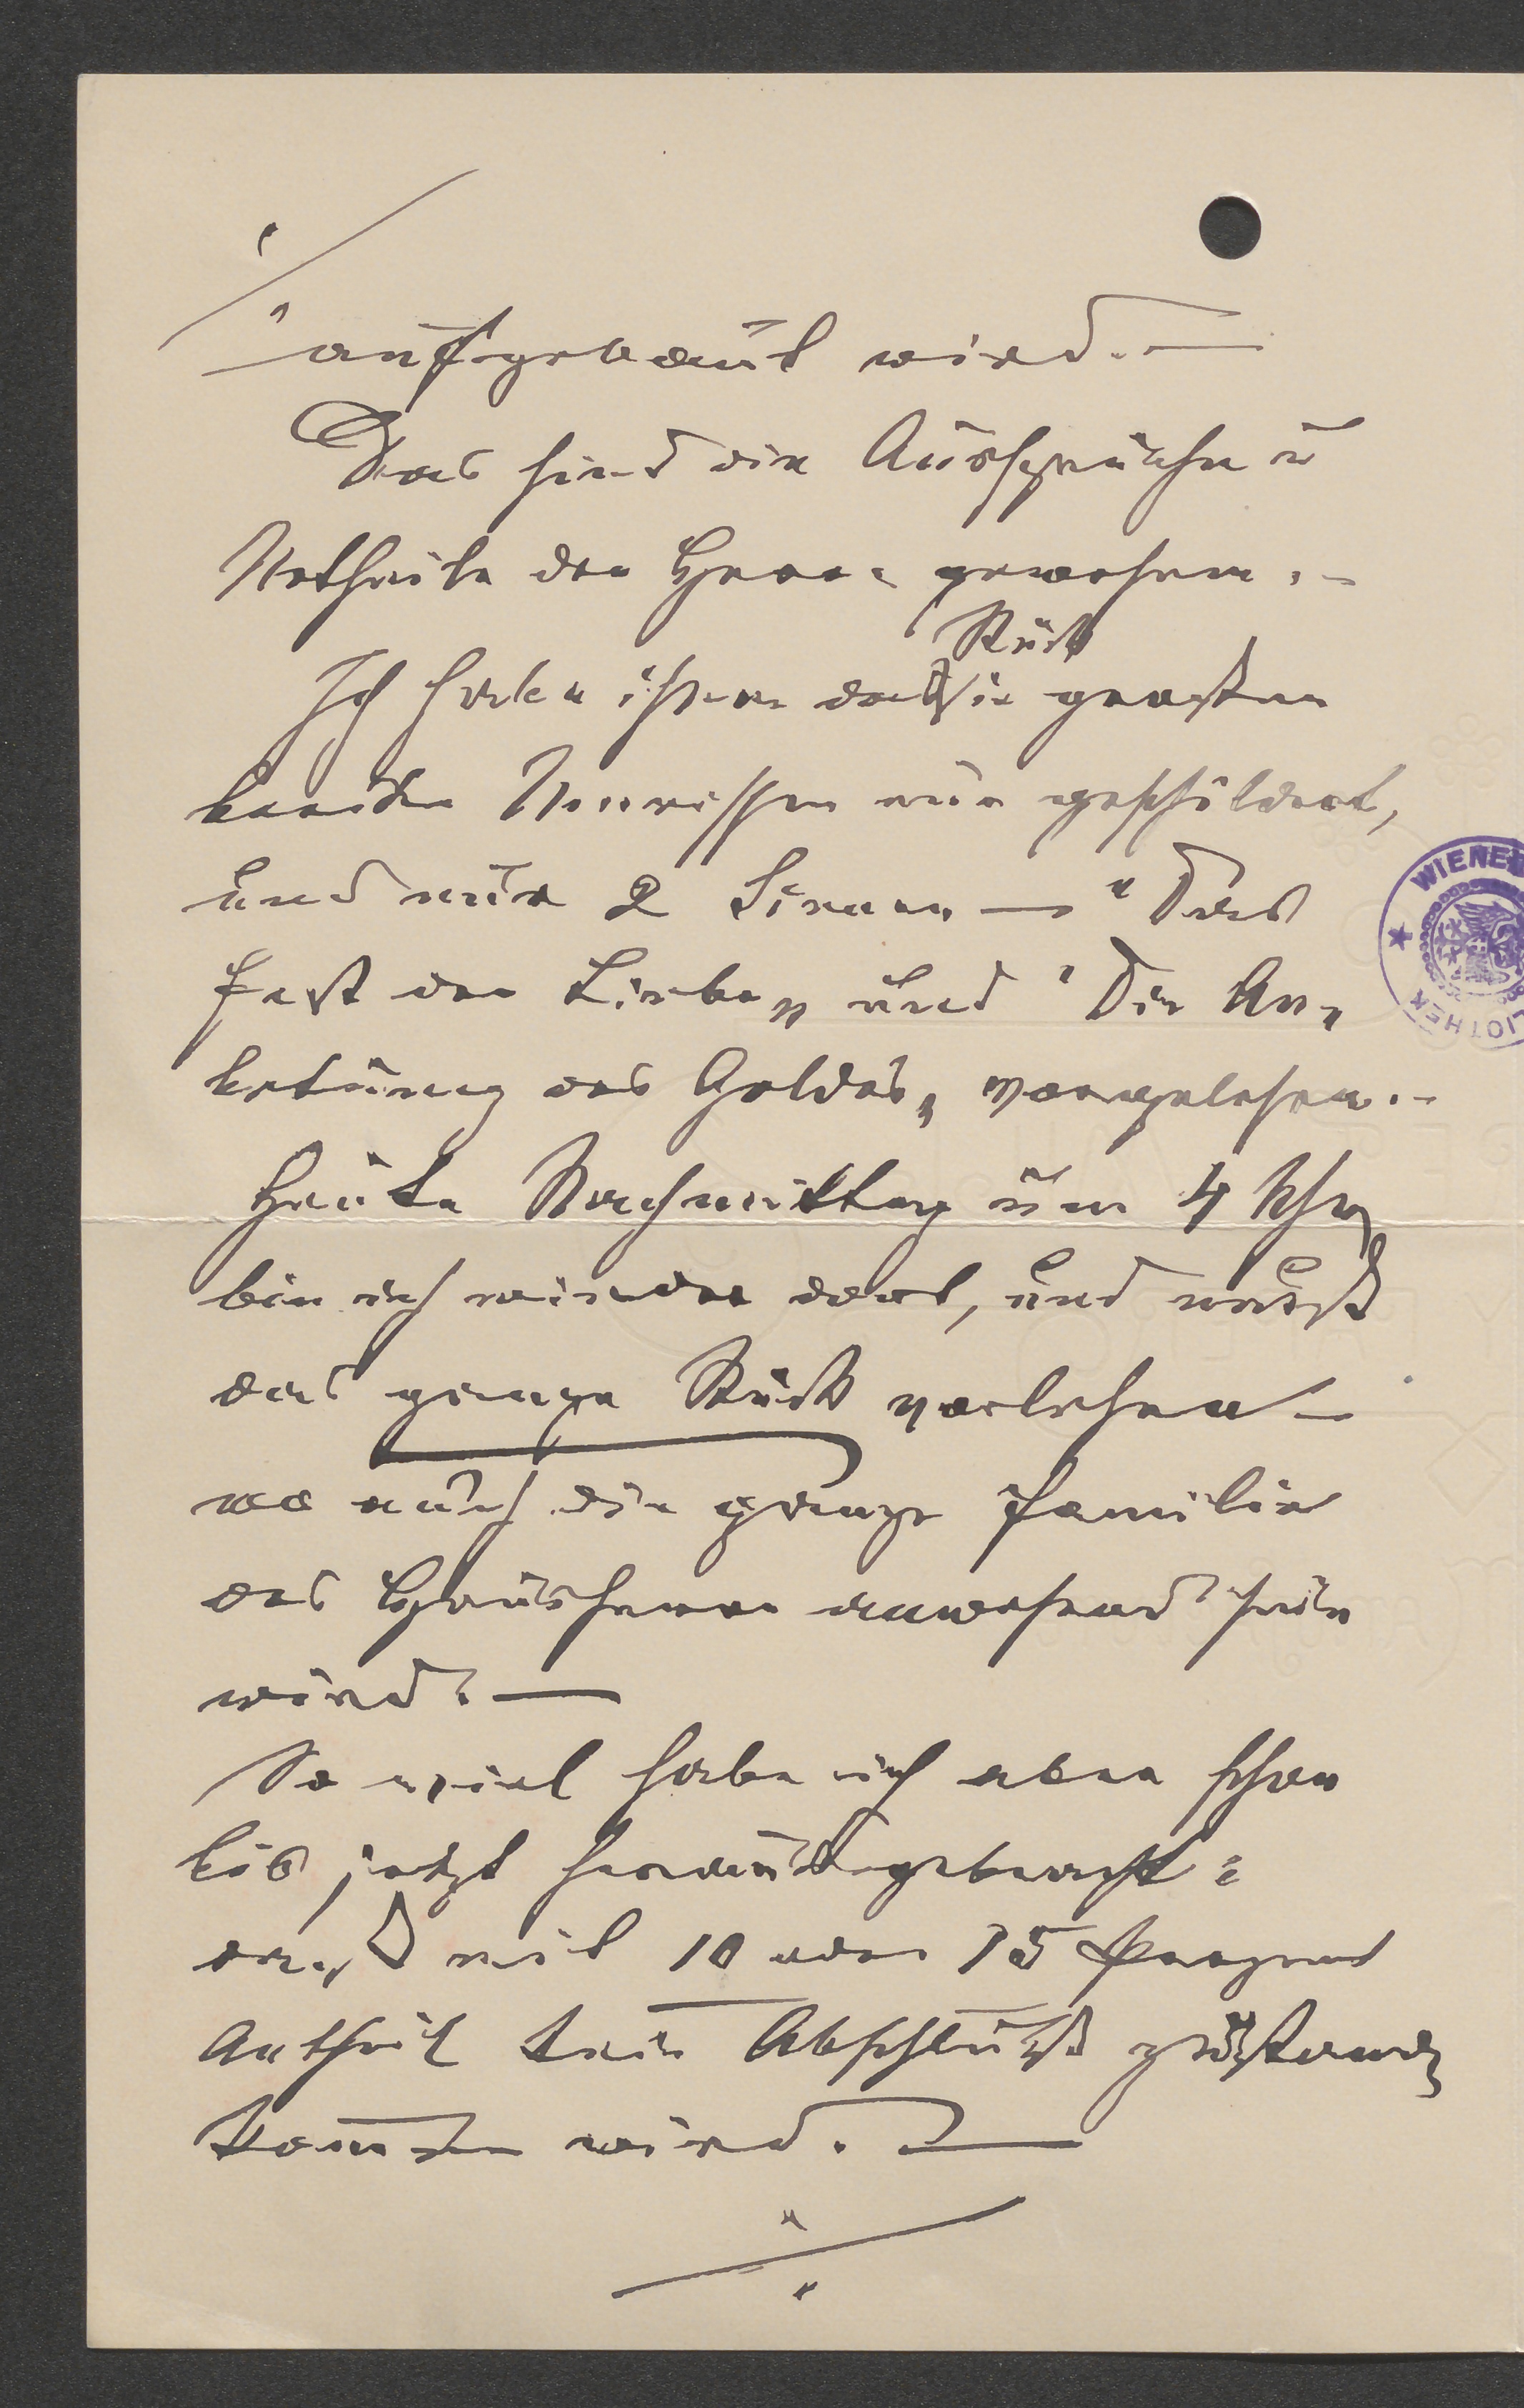 aufgebaut wird. —
Das sind die Aussprüche u
Urtheile der Herrn gewesen. –
Stück
Ich habe ihnen das in großen
breiten Umrissen nur geschildert,
und nur 2 Sinnen — "Das
Fest der Liebe" und "Die An-
betung des Goldes" vorgelesen. –
Heute Nachmittag um 4 Uhr
bin ich wieder dort, und muß
das ganze Stück vorlesen –
wo auch die ganze Familie
des Hausherrn anwesend sein
wird. —
So viel habe ich aber schon
bis jetzt herausgebracht:
daß mit 10 oder 15 Prozent
Antheil kein Abschluß zustande
kommen wird. —
WIENER
LIOTHEK